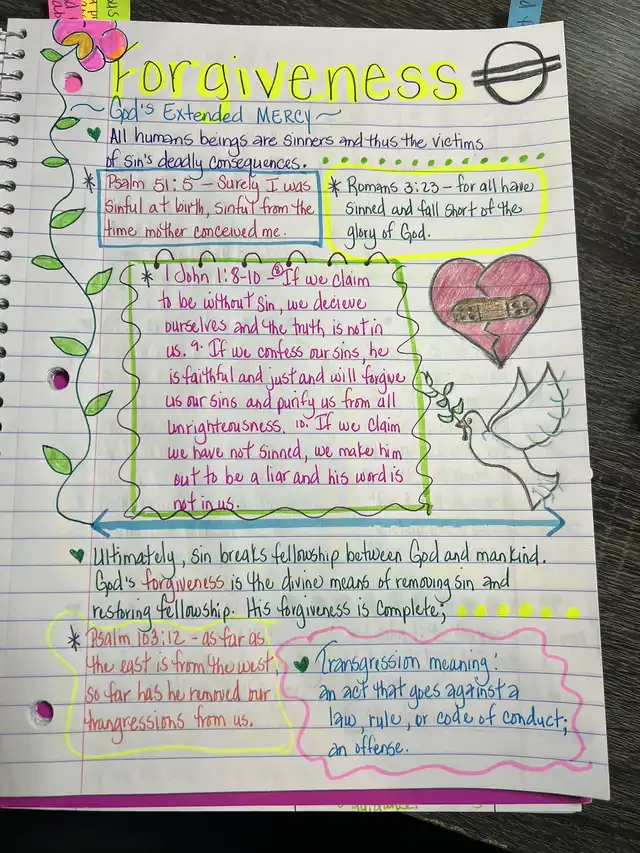 Forgiveness
~ God's Extended MERCY ~
♥ All humans beings are sinners and thus the victims
of sin's deadly consequences.
* Psalm 51:5 - Surely I was
sinful at birth, sinful from the
time mother conceived me.
* Romans 3:23 - for all have
sinned and fall short of the
glory of God.
* 1 John 1:8-10 - 8 If we claim
to be without sin, we decieve
ourselves and the truth is not in
us. 9. If we confess our sins, he
is faithful and just and will forgive
us our sins and purify us from all
unrighteousness. 10. If we claim
we have not sinned, we make him
out to be a liar and his word is
not in us.
♥ Ultimately, sin breaks fellowship between God and mankind.
God's forgiveness is the divine means of removing sin and
restoring fellowship. His forgiveness is complete;
* Psalm 103:12 - as far as
the east is from the west,
so far has he removed our
trangressions from us.
♥ Transgression meaning:
an act that goes against a
law, rule, or code of conduct;
an offense.